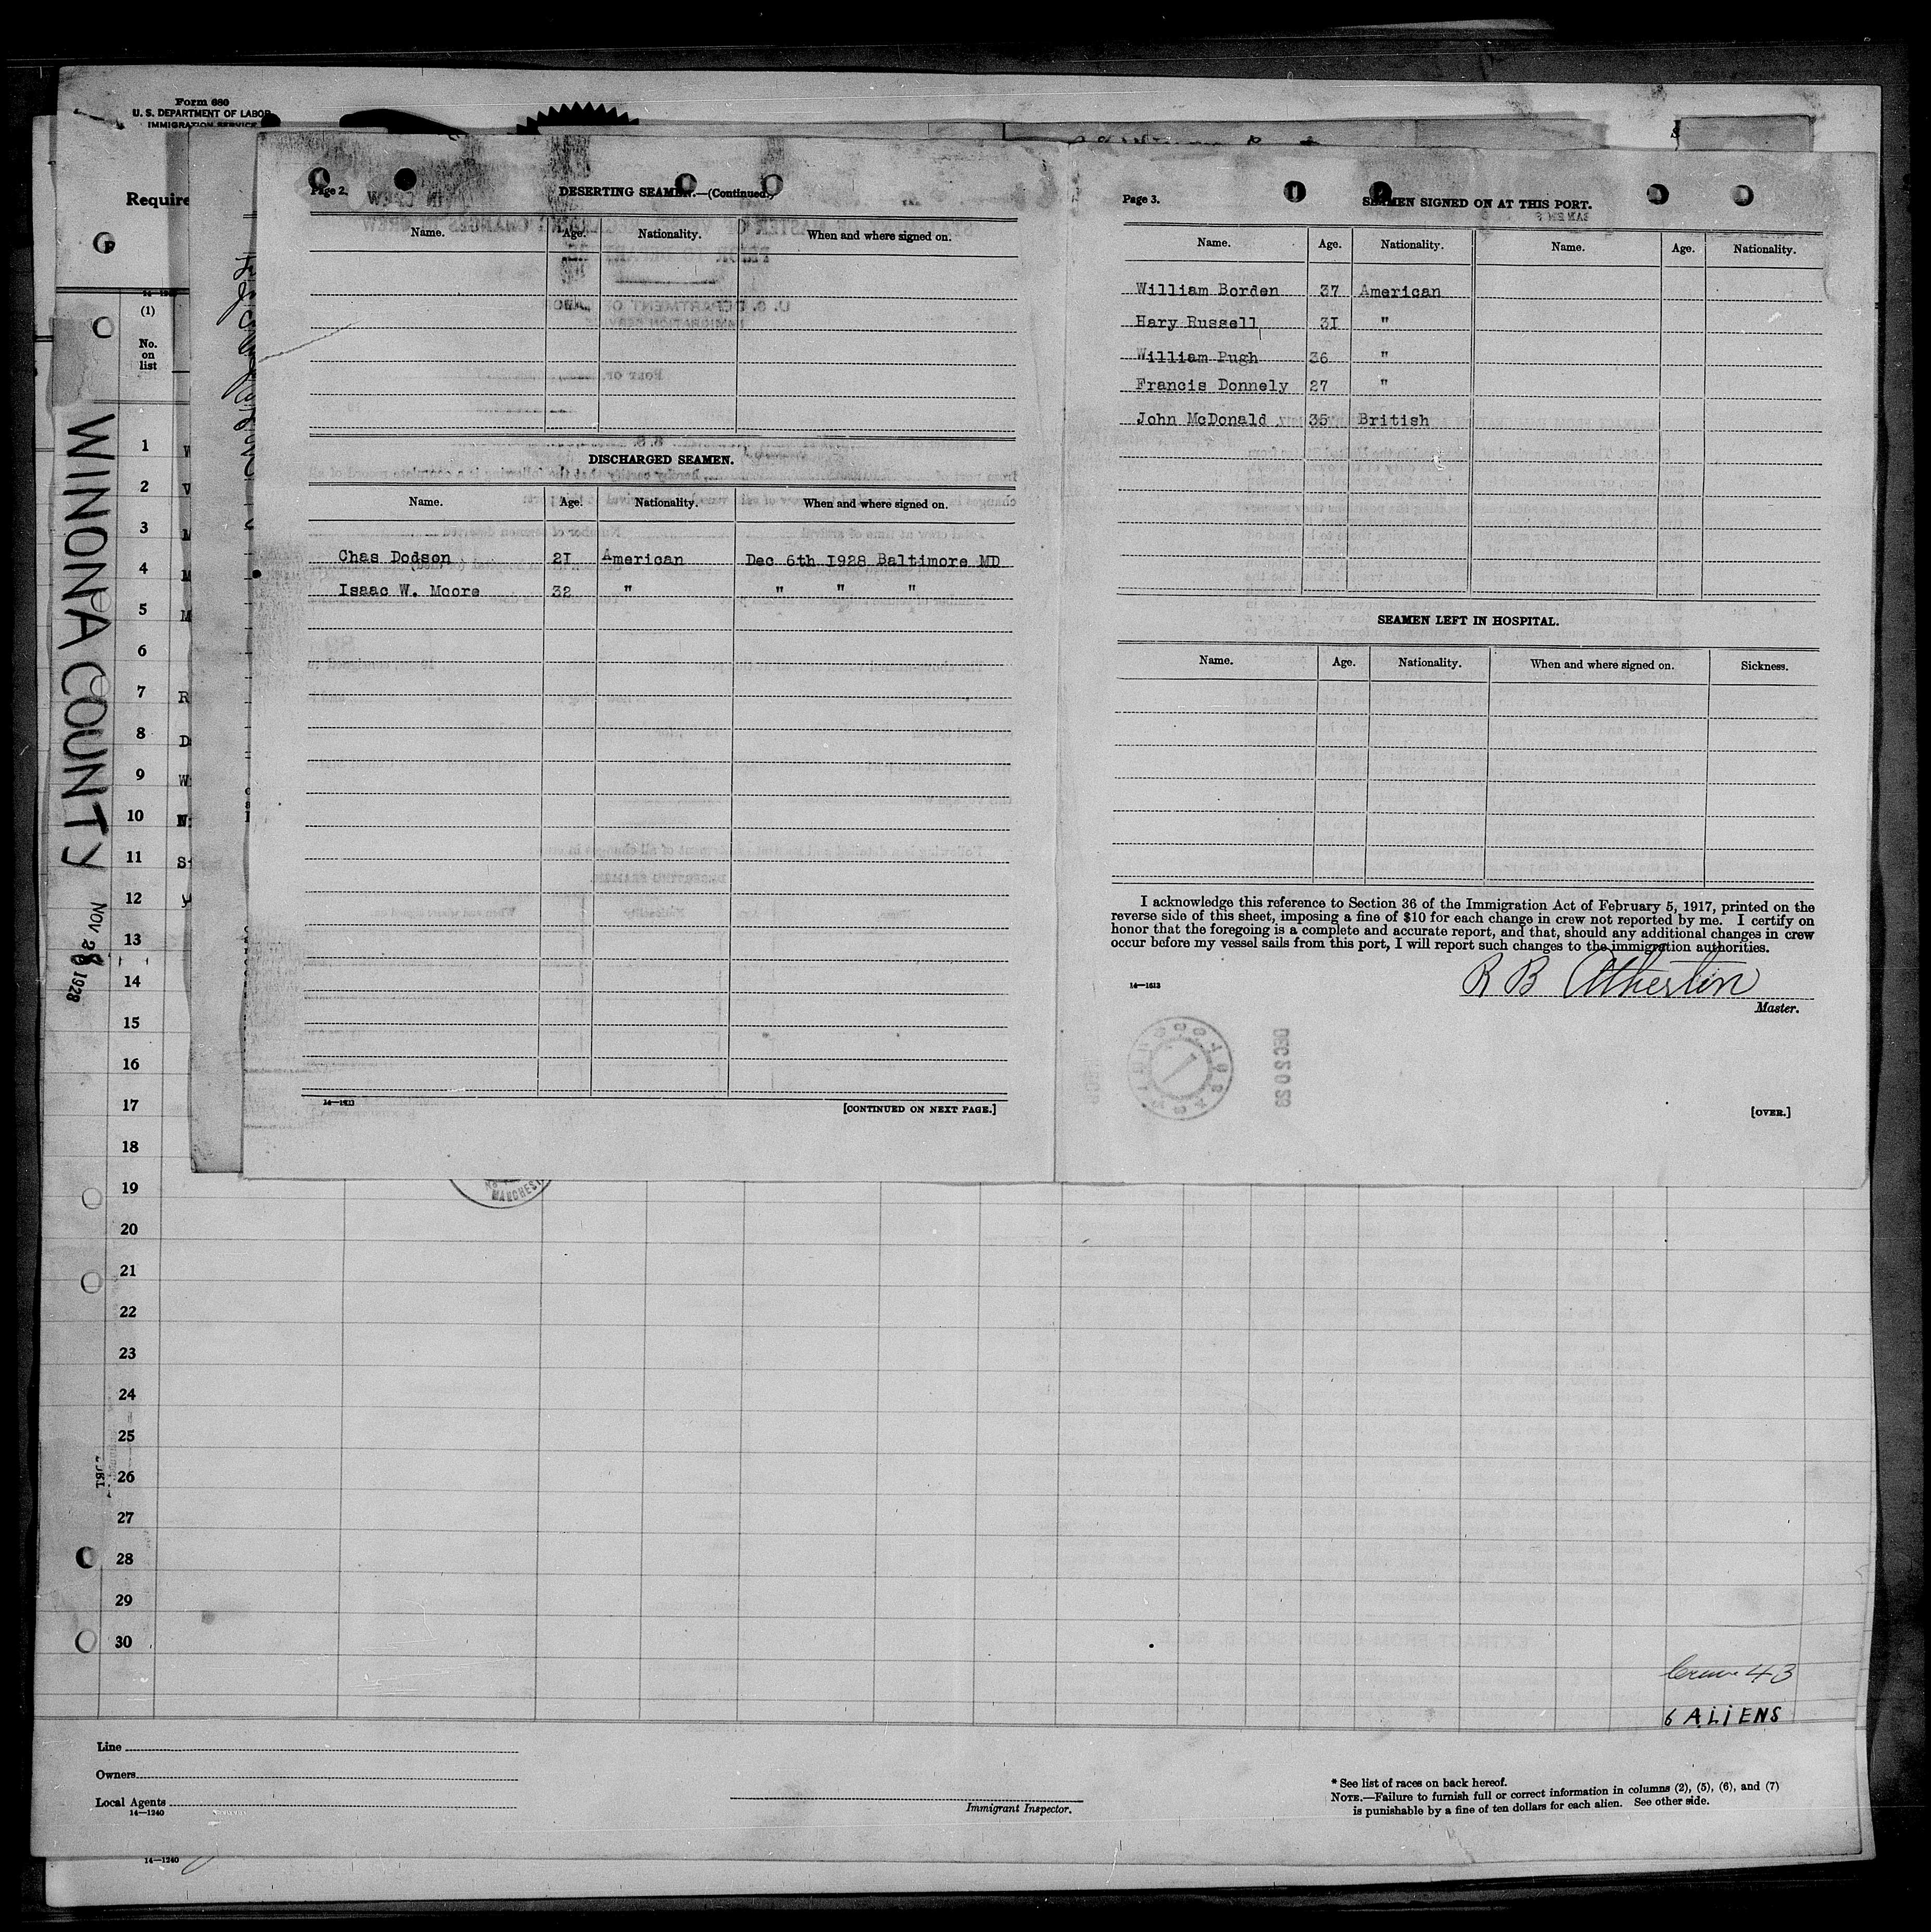 Form 680
U. S. DEPARTMENT OF LABOR
IMMIGRATION SERVICE
Require
14—1240
(1)
No.
on
list
WINONA COUNTY
NOV 28 1928
1
2
3
4
5
6
7 R
8 D
9 W
10
11
12
13
14
15
16
17
18
19
20
21
22
23
24
25
26
27
28
29
30
Page 2.
DESERTING SEAMEN.—(Continued.)
Name. Age. Nationality. When and where signed on.
DISCHARGED SEAMEN.
Name. Age. Nationality. When and where signed on.
Chas Dodson 21 American Dec 6th 1928 Baltimore MD
Isaac W. Moore 32 " " " "
14—1613
[CONTINUED ON NEXT PAGE.]
Page 3.
SEAMEN SIGNED ON AT THIS PORT.
Name. Age. Nationality. Name. Age. Nationality.
William Borden 37 American
Hary Russell 31 "
William Pugh 36 "
Francis Donnely 27 "
John McDonald 35 British
SEAMEN LEFT IN HOSPITAL.
Name. Age. Nationality. When and where signed on. Sickness.
I acknowledge this reference to Section 36 of the Immigration Act of February 5, 1917, printed on the
reverse side of this sheet, imposing a fine of $10 for each change in crew not reported by me. I certify on
honor that the foregoing is a complete and accurate report, and that, should any additional changes in crew
occur before my vessel sails from this port, I will report such changes to the immigration authorities.
R B Atherton
14—1613
Master.
DEC 20 28
[OVER.]
MANCHEST
Crew 43
6 ALIENS
Line
Owners
Local Agents
14—1240
Immigrant Inspector.
* See list of races on back hereof.
NOTE.—Failure to furnish full or correct information in columns (2), (5), (6), and (7)
is punishable by a fine of ten dollars for each alien. See other side.
14—1240